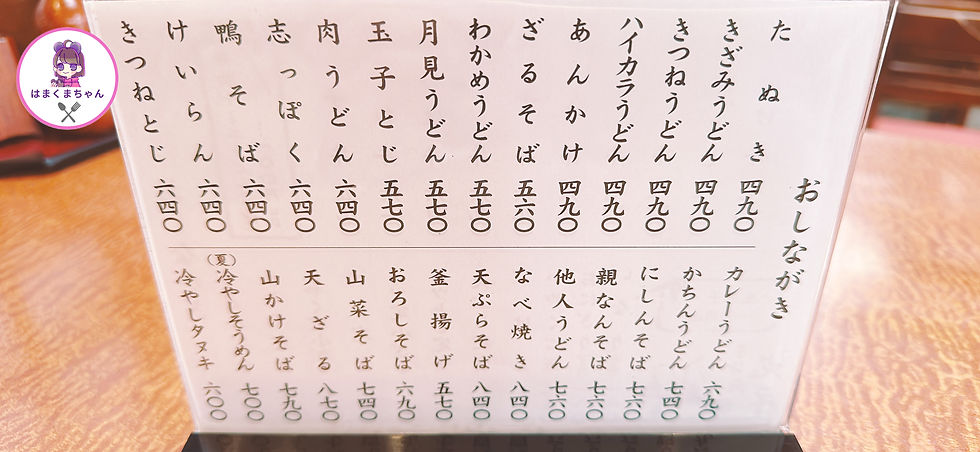 おしながき
たぬき 四九〇
きざみうどん 四九〇
きつねうどん 四九〇
ハイカラうどん 四九〇
あんかけ 四九〇
ざるそば 五六〇
わかめうどん 五七〇
月見うどん 五七〇
玉子とじ 五七〇
肉うどん 六四〇
志っぽく 六四〇
鴨そば 六四〇
けいらん 六四〇
きつねとじ 六四〇
カレーうどん 六九〇
かちんうどん 七四〇
にしんそば 七六〇
親なんそば 七六〇
他人うどん 七六〇
なべ焼き 八四〇
天ぷらそば 八四〇
釜揚げ 五七〇
おろしそば 六九〇
山菜そば 七四〇
天ざる 八七〇
山かけそば 七九〇
(夏) 冷やしそうめん 七〇〇
冷やしタヌキ 六〇〇
はまくまちゃん